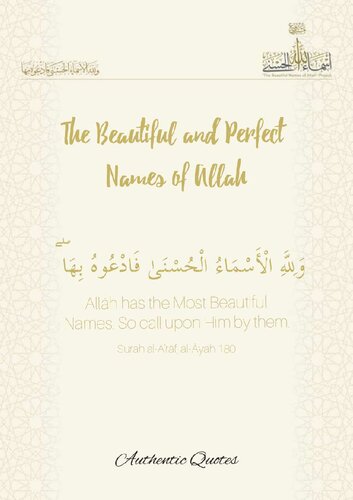 ولله الأسماء الحسنى فادعوه بها
أسماء الله الحسنى
The Beautiful Names of Allah Project
The Beautiful and Perfect
Names of Allah
وَلِلَّهِ الْأَسْمَاءُ الْحُسْنَىٰ فَادْعُوهُ بِهَا ۖ
Allāh has the Most Beautiful
Names. So call upon Him by them.
Surah al-A'rāf, al-Āyah 180
Authentic Quotes